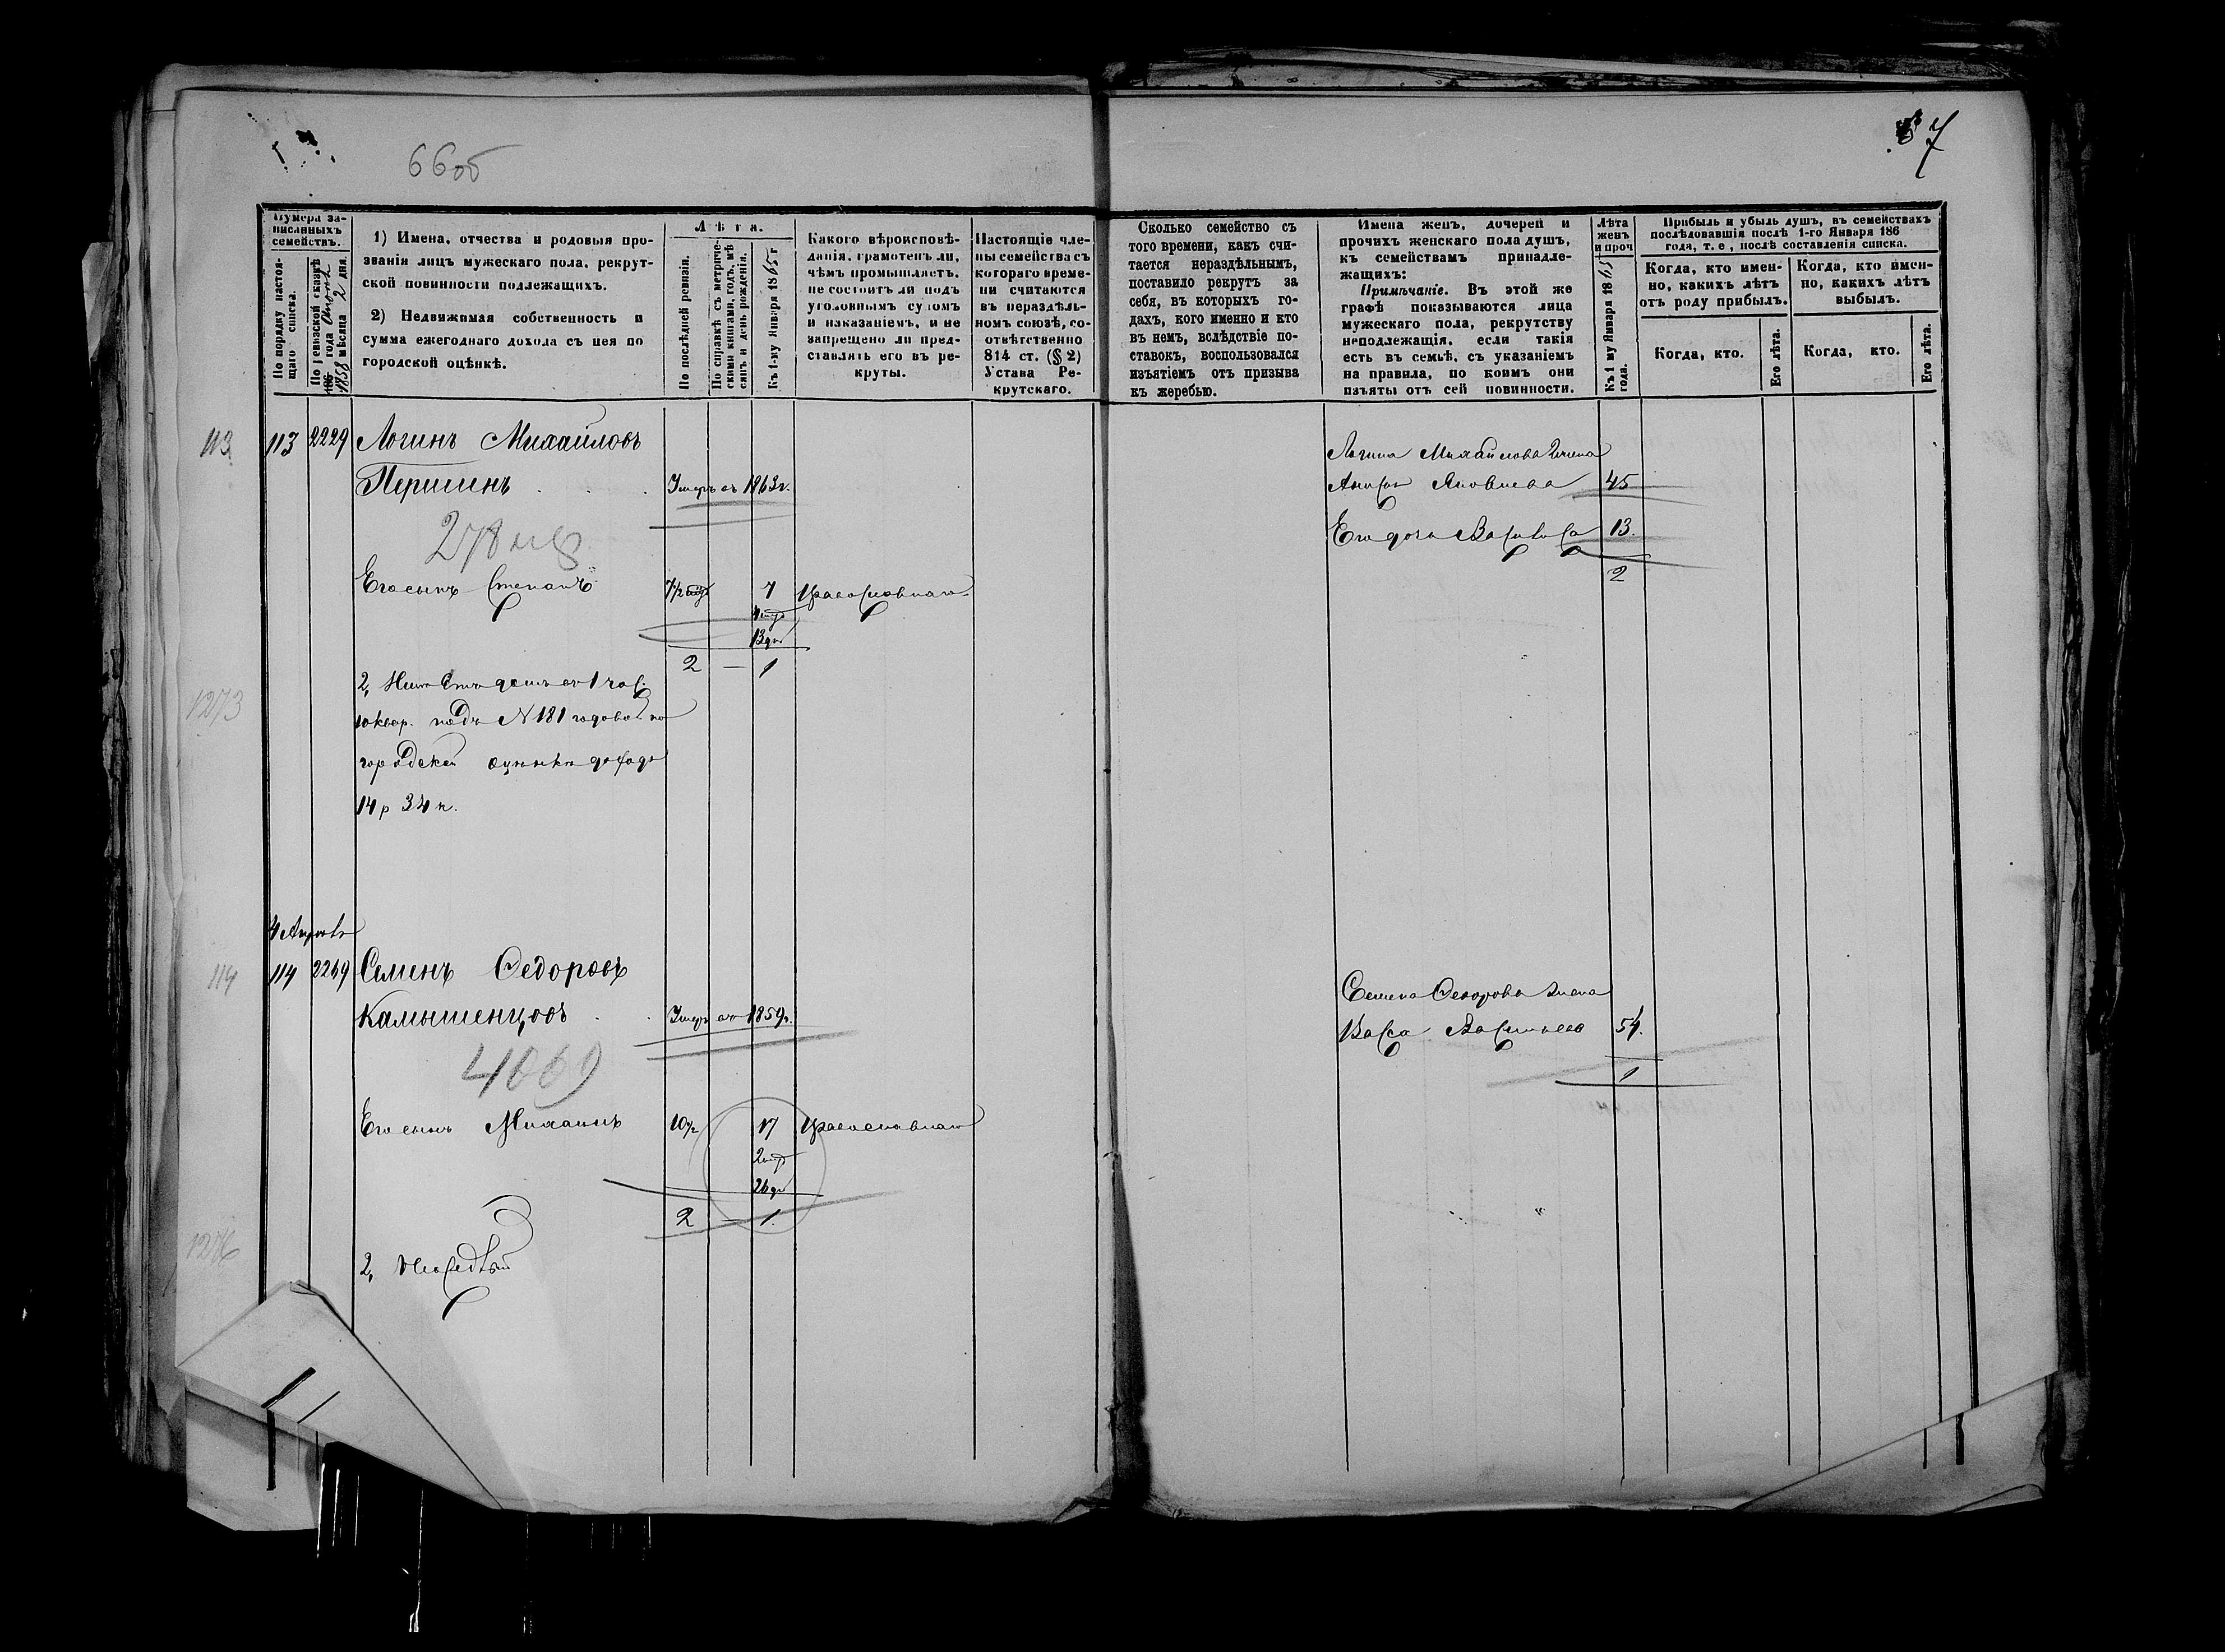 66об
67
Нумера за-
писанныхъ
семействъ.
По порядку настоя-
щаго списка.
По ревизской сказкѣ
186 года
1858 мѣсяца 2 дня.
1) Имена, отчества и родовыя про-
званія лицъ мужескаго пола, рекрут-
ской повинности подлежащихъ.
2) Недвижимая собственность и
сумма ежегоднаго дохода съ нея по
городской оцѣнкѣ.
Лѣта.
По послѣдней ревизіи.
По справкѣ съ метриче-
скими книгами, годъ, мѣ
сяцъ и день рожденія.
Къ 1-му Января 1865 г
Какого вѣроисповѣ-
данія, грамотенъ ли,
чѣмъ промышляетъ,
не состоитъ ли подъ
уголовнымъ судомъ
и наказаніемъ, и не
запрещено ли пред-
ставлять его въ ре-
круты.
Настоящіе чле-
ны семейства съ
котораго време-
ни считаются
въ нераздѣль-
номъ союзѣ, со-
отвѣтственно
814 ст. (§ 2)
Устава Ре-
крутскаго.
Сколько семейство съ
того времени, какъ счи-
тается нераздѣльнымъ,
поставило рекрутъ за
себя, въ которыхъ го-
дахъ, кого именно и кто
въ немъ, вслѣдствіе по-
ставокъ, воспользовался
изъятіемъ отъ призыва
къ жеребью.
Имена женъ, дочерей и
прочихъ женскаго пола душъ,
къ семействамъ принадле-
жащихъ:
Примѣчаніе. Въ этой же
графѣ показываются лица
мужескаго пола, рекрутству
неподлежащія, если такія
есть въ семьѣ, съ указаніемъ
на правила, по коимъ они
изъяты отъ сей повинности.
Лѣта
женъ
и проч
Къ 1 му Января 1865
года.
Прибыль и убыль душъ, въ семействахъ
послѣдовавшія послѣ 1-го Января 186
года, т. е, послѣ составленія списка.
Когда, кто имен-
но, какихъ лѣтъ
отъ роду прибылъ.
Когда, кто имен-
но, какихъ лѣтъ
выбылъ.
Когда, кто.
Его лѣта.
Когда, кто.
Его лѣта.
113 113 2229 Логинъ Михайловъ
Першинъ Умеръ въ 1863 г.
Его сынъ Степанъ 7 Православнаго
13 дн
2 — 1
2, домъ въ 1 час.
10 квар. подъ N 181 годовой по
городской оцѣнкѣ доходъ
14 р 34 к.
1273
Логина Михайлова жена
Яковлева 45
Его дочь Василиса 13.
2
114 114 2249 Семенъ Федоровъ
Камышенцовъ Умеръ въ 1859 г.
4069
Его сынъ Михаилъ 10 1/2 17 Православнаго
2
26 дн
2 — 1.
2,
1276
Семена Федорова жена
Васса Васильева 54.
1